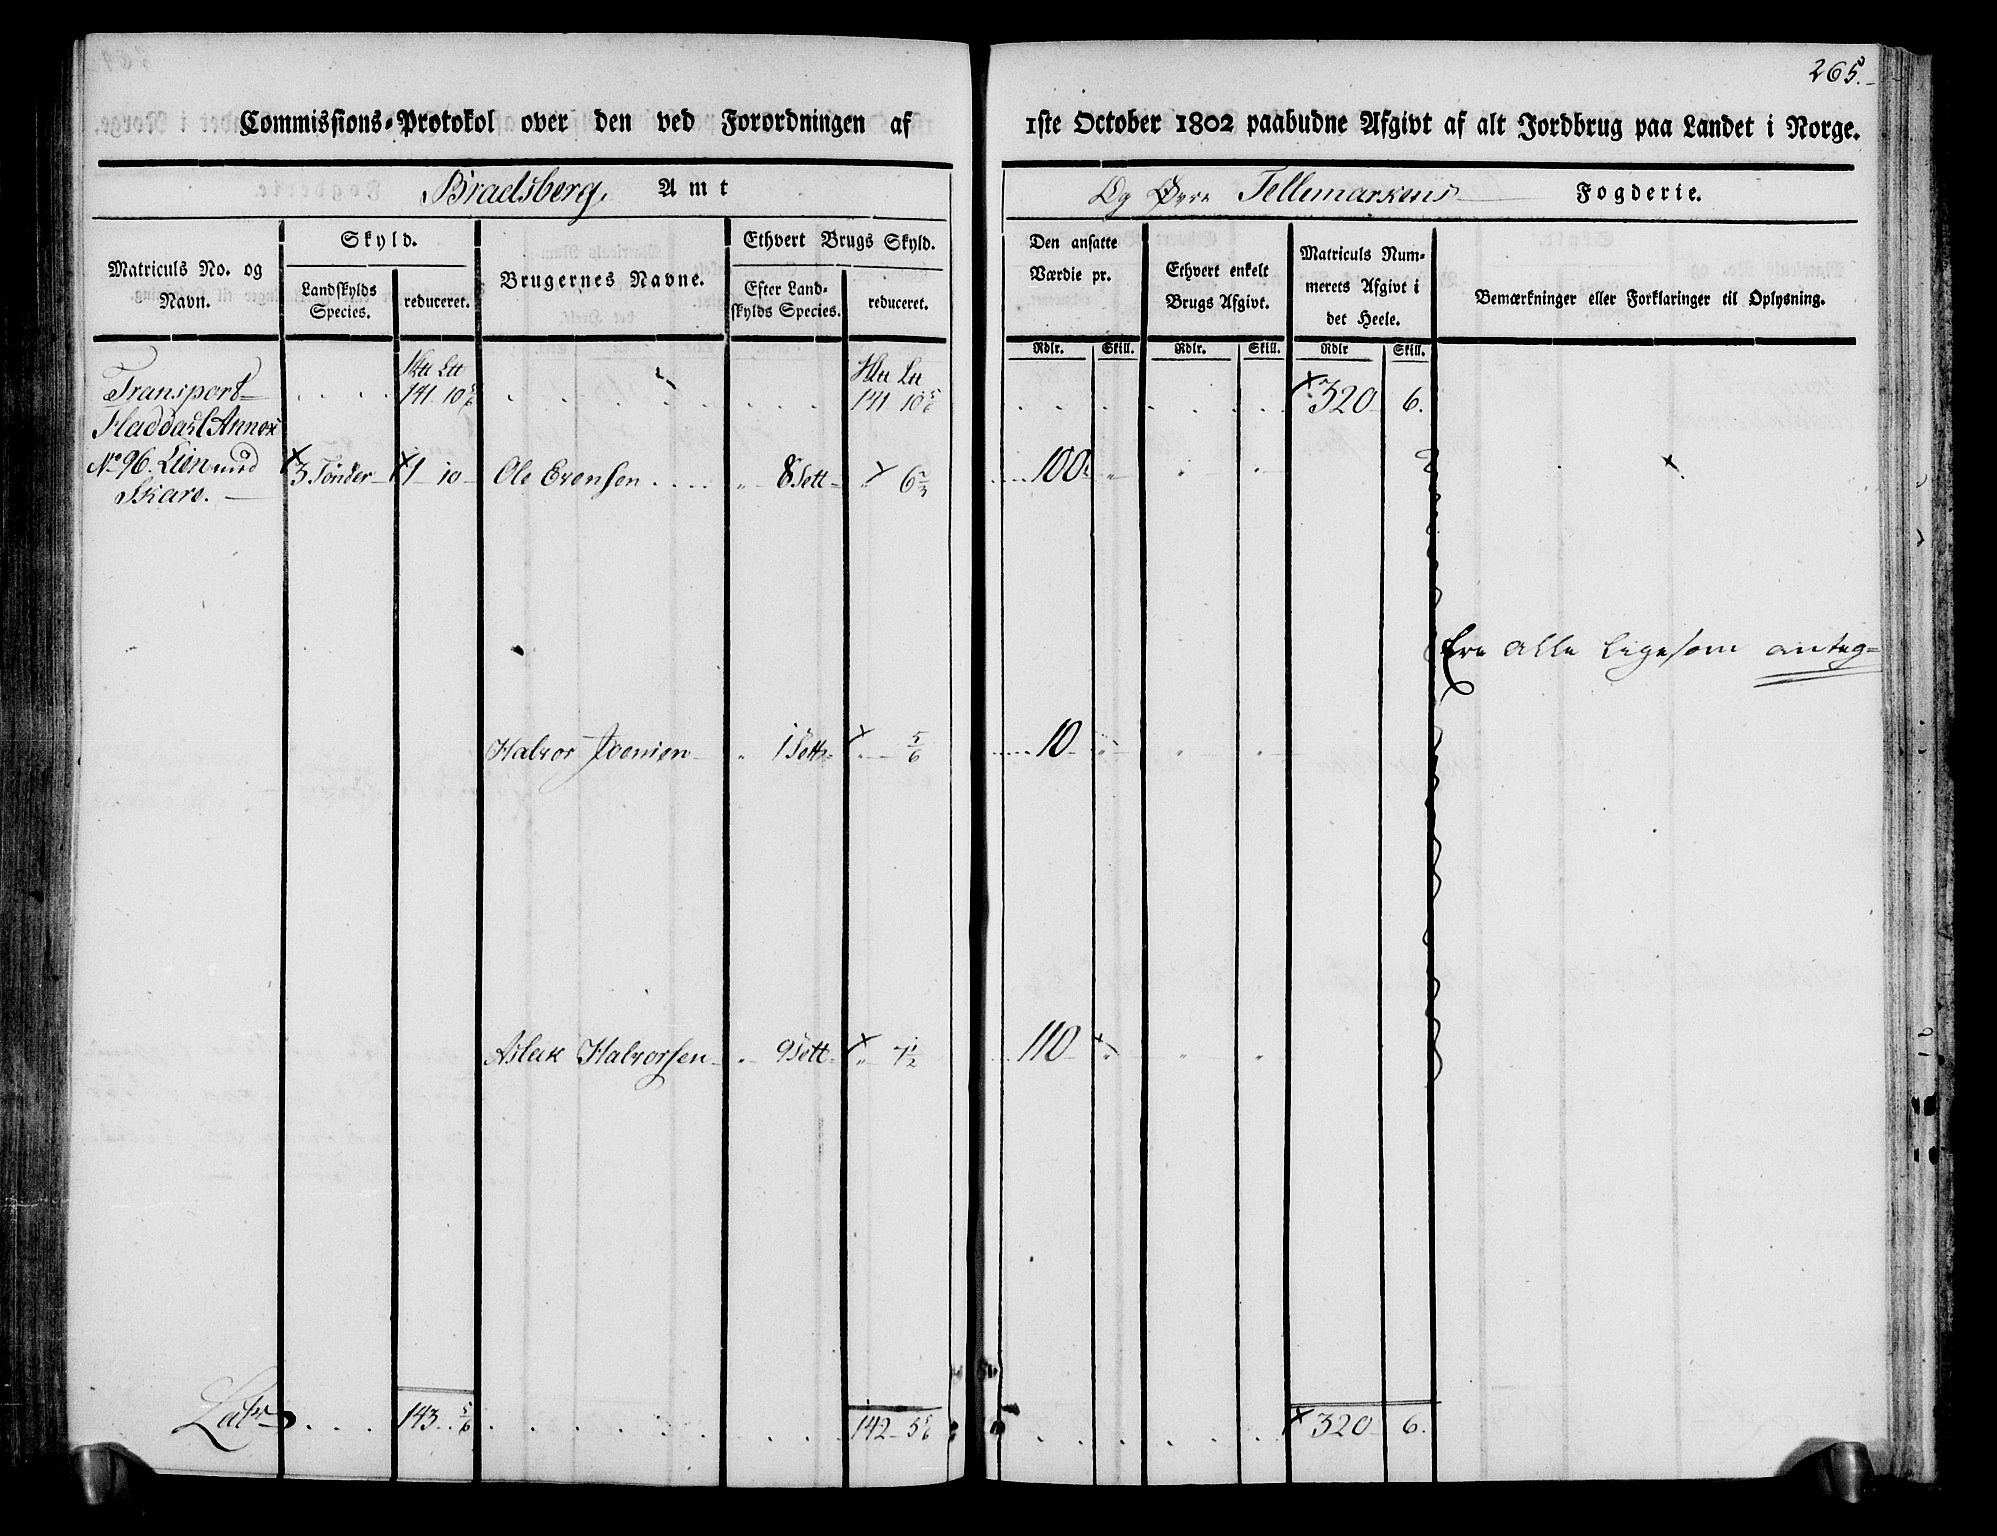 265.
Commissions-Protokol over den ved Forordningen af 1ste October 1802 paabudne Afgivt af alt Jordbrug paa Landet i Norge.
Bradsberg, Amt
Og Øvre Tellemarkens Fogderie.
Matriculs No. og Navn.
Skyld.
Landskylds Species.
reduceret.
Brugernes Navne.
Ethvert Brugs Skyld.
Efter Landskylds Species.
reduceret.
Den ansatte Værdie pr.
Ethvert enkelt Brugs Afgivt.
Matriculs Nummerets Afgivt i det Heele.
Bemærkninger eller Forklaringer til Oplysning.
Rdlr. Skill. Rdlr. Skill. Rdlr Skill.
Transport 141 10 5/6 141 10 5/6 320 6.
Fladdasl Annex
No 96. Lien und 3 Tønder 1 10 Ole Evensen 8 Sett 6 2/3 100
Skare.
Ere alle ligesom anteg=
Halvor Joensen 1 Sett 5/6 10
Aslak Halvorsen 9 Sett 7 1/2 110
Latr 143 5/6 142 5 5/6 320 6.